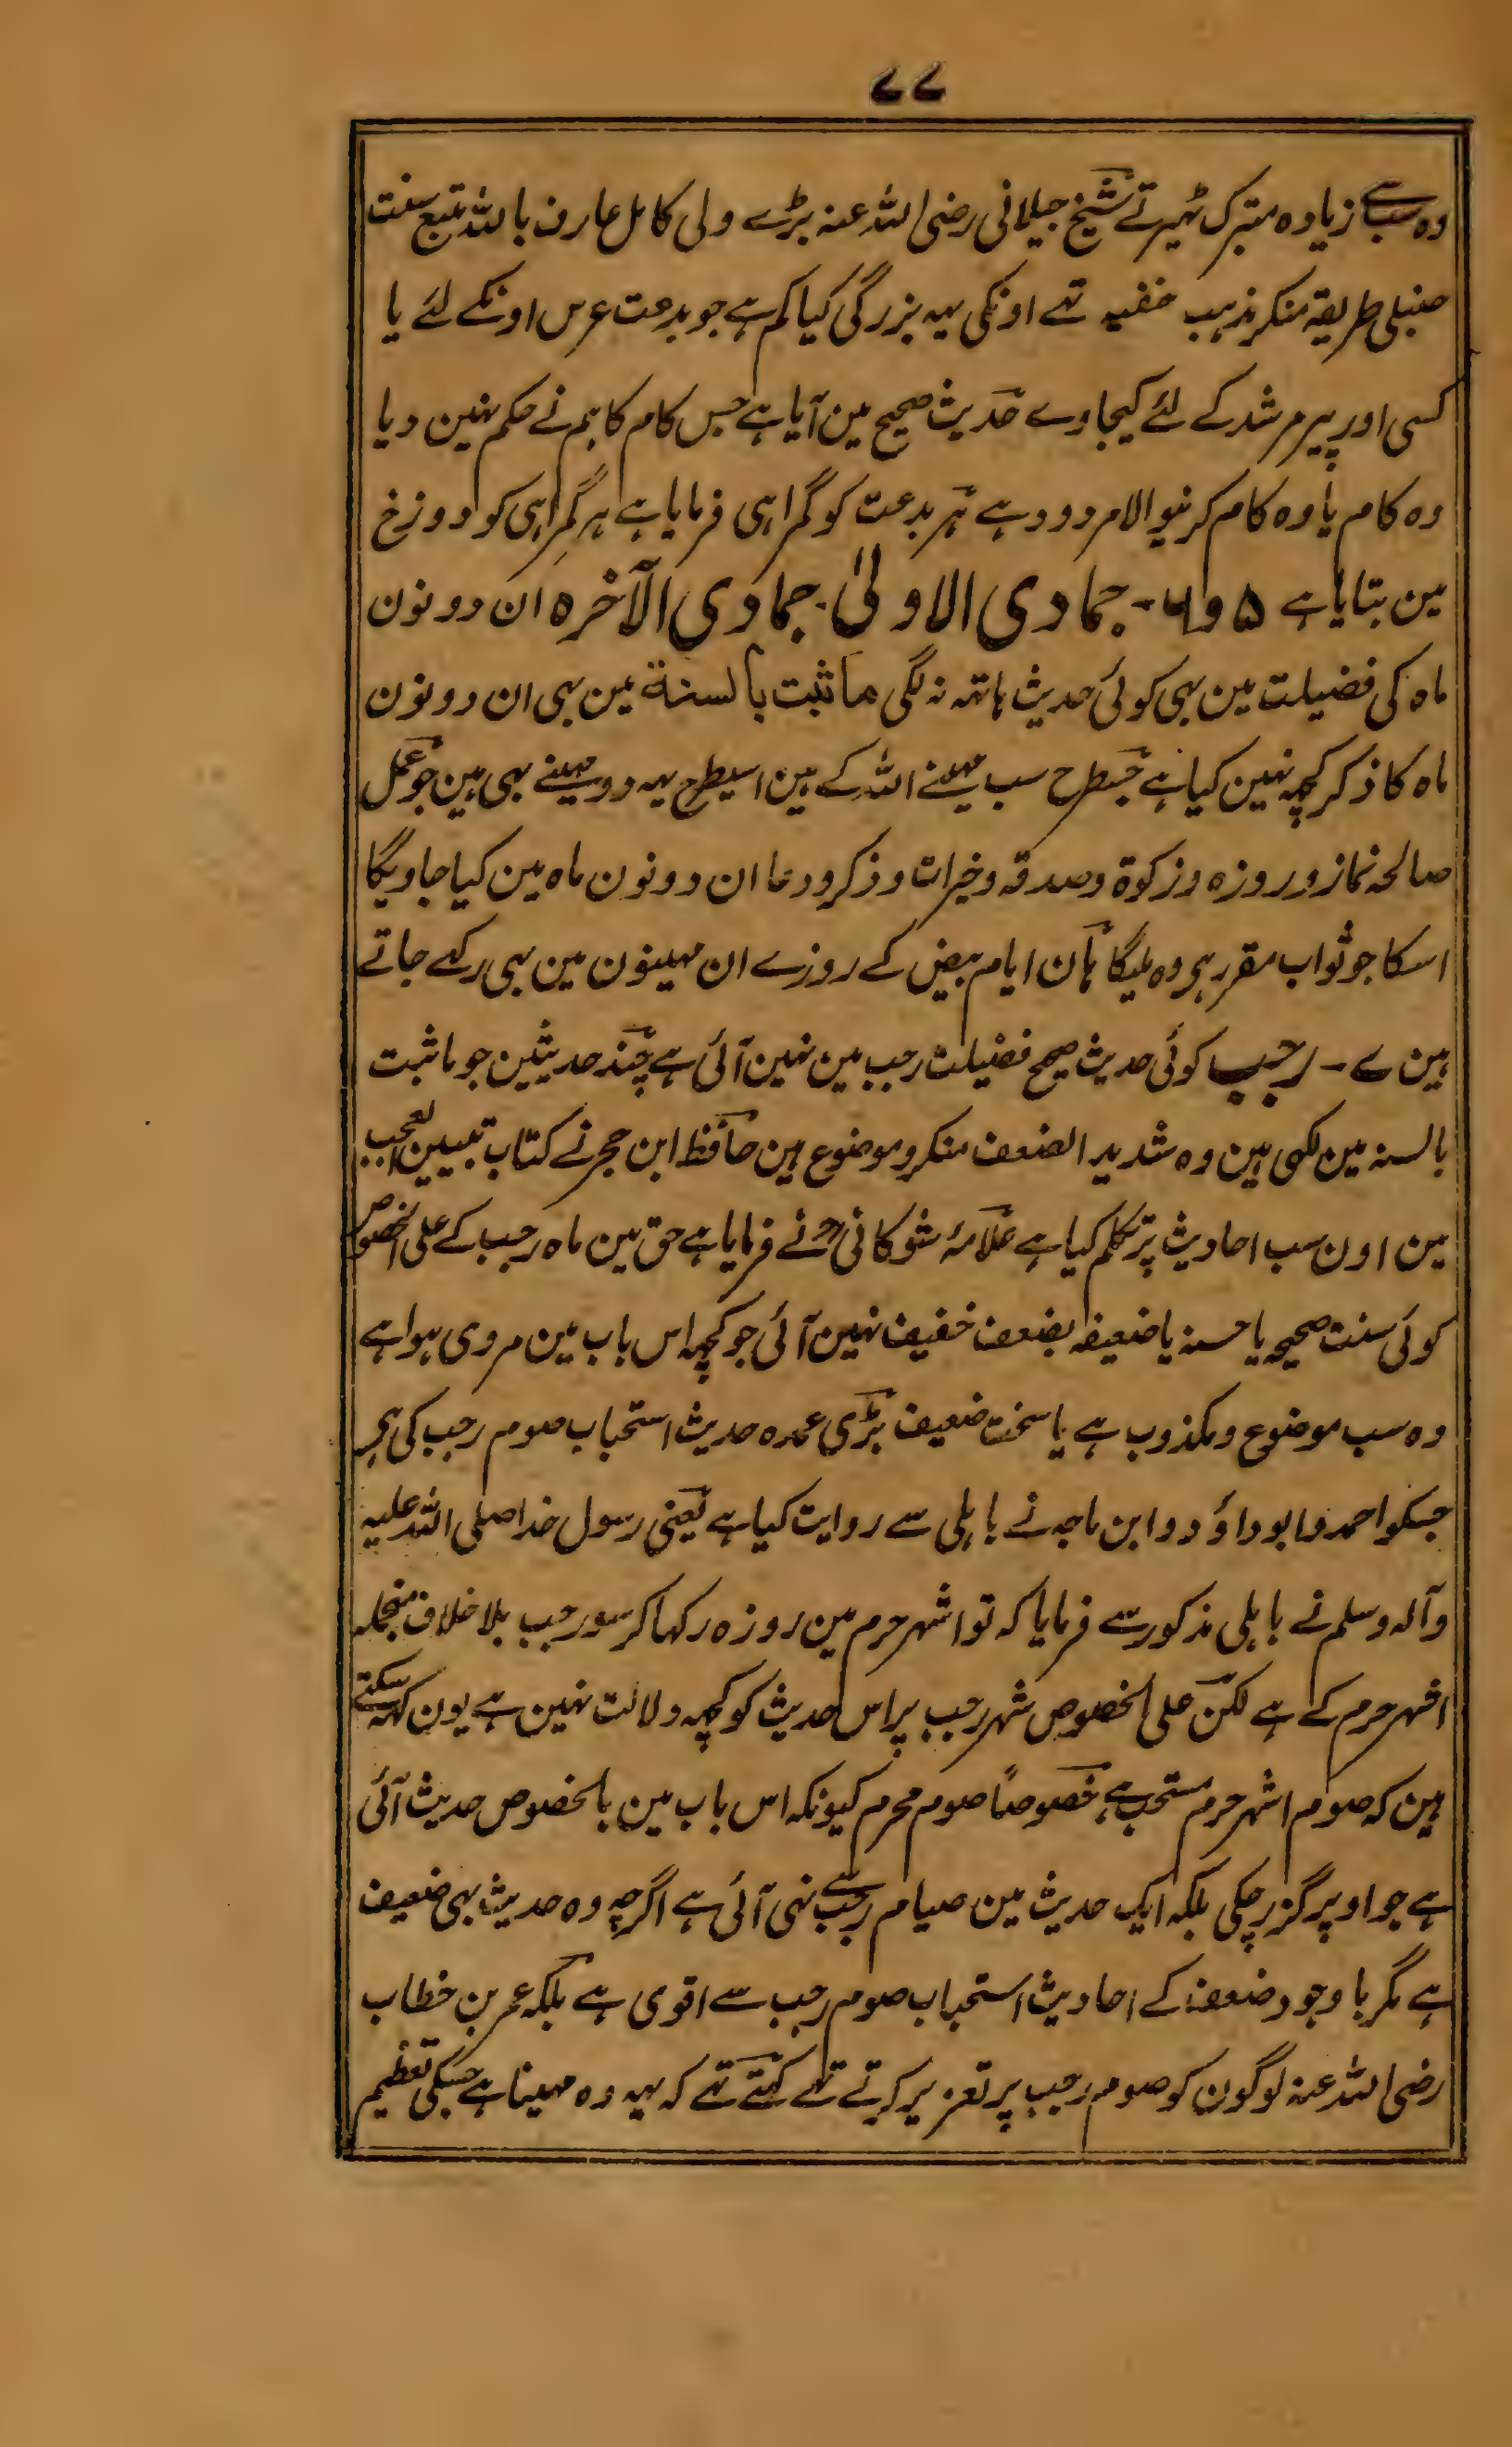 ۷۷
وہ سب سے زیادہ متبرک ٹہیرتے شیخ جیلانی رضی اللہ عنہ بڑے ولی کامل عارف باللہ متبع سنت
حنبلی طریقہ منکر مذہب حنفیہ تھے اونکی یہہ بزرگی کیا کم ہے جو بدعت عرس اونکے لئے یا
کسی اور پیر مرشد کے لئے کیجاوے حدیث صحیح مین آیا ہے جس کام کا ہم نے حکم نہین دیا
وہ کام یا وہ کام کرنیوالا مردود ہے ہر بدعت کو گمراہی فرمایا ہے ہر گمراہی کو دوزخ
مین بتایا ہے ۵ و ۶ - جمادی الاولیٰ۔ جمادی الآخرہ ان دونون
ماہ کی فضیلت مین بہی کوئی حدیث ہاتہہ نہ لگی ما ثبت بالسنة مین بہی ان دونون
ماہ کا ذکر کچہہ نہین کیا ہے جسطرح سب مہینے اللہ کے ہین اسیطرح یہہ دو مہینے بہی ہین جو عمل
صالحہ نماز و روزہ و زکوۃ و صدقہ و خیرات و ذکر و دعا ان دونون ماہ مین کیا جاویگا
اسکا جو ثواب مقرر ہی وہ ملیگا ہان ایام بیض کے روزے ان مہینون مین بہی رکہے جاتے
ہین ۷ - رجب کوئی حدیث صحیح فضیلت رجب مین نہین آئی ہے چند حدیثین جو ما ثبت
بالسنہ مین لکہی ہین وہ شدید الضعف منکر و موضوع ہین حافظ ابن حجر نے کتاب تبیین العجب
مین اون سب احادیث پر تکلم کیا ہے علامۂ شوکانیؒ نے فرمایا ہے حق مین ماہ رجب کے علی الخصوص
کوئی سنت صحیحہ یا حسنہ یا ضعیفہ بضعف خفیف نہین آئی جو کچہہ اس باب مین مروی ہوا ہے
وہ سب موضوع و مکذوب ہے یا سخت ضعیف بڑی عمدہ حدیث استحباب صوم رجب کی ہی
جسکو احمد و ابو داؤد و ابن ماجہ نے باہلی سے روایت کیا ہے یعنی رسول خدا صلی اللہ علیہ
وآلہ وسلم نے باہلی مذکور سے فرمایا کہ تو اشہر حرم مین روزہ رکہا کر سو رجب بلا خلاف منجملہ
اشہر حرم کے ہے لکن علی الخصوص شہر رجب پر اس حدیث کو کچہہ دلالت نہین ہے یون کہہ سکتے
ہین کہ صوم اشہر حرم مستحب ہے، خصوصاً صوم محرم کیونکہ اس باب مین بالخصوص حدیث آئی
ہے جو اوپر گزر چکی بلکہ ایک حدیث مین صیام رجب سے نہی آئی ہے اگرچہ وہ حدیث بہی ضعیف
ہے مگر باوجود ضعف کے احادیث استحباب صوم رجب سے اقوی ہے بلکہ عمر بن خطاب
رضی اللہ عنہ لوگون کو صوم رجب پر تعزیر کرتے تھے کہتے تھے کہ یہہ وہ مہینا ہے جسکی تعظیم